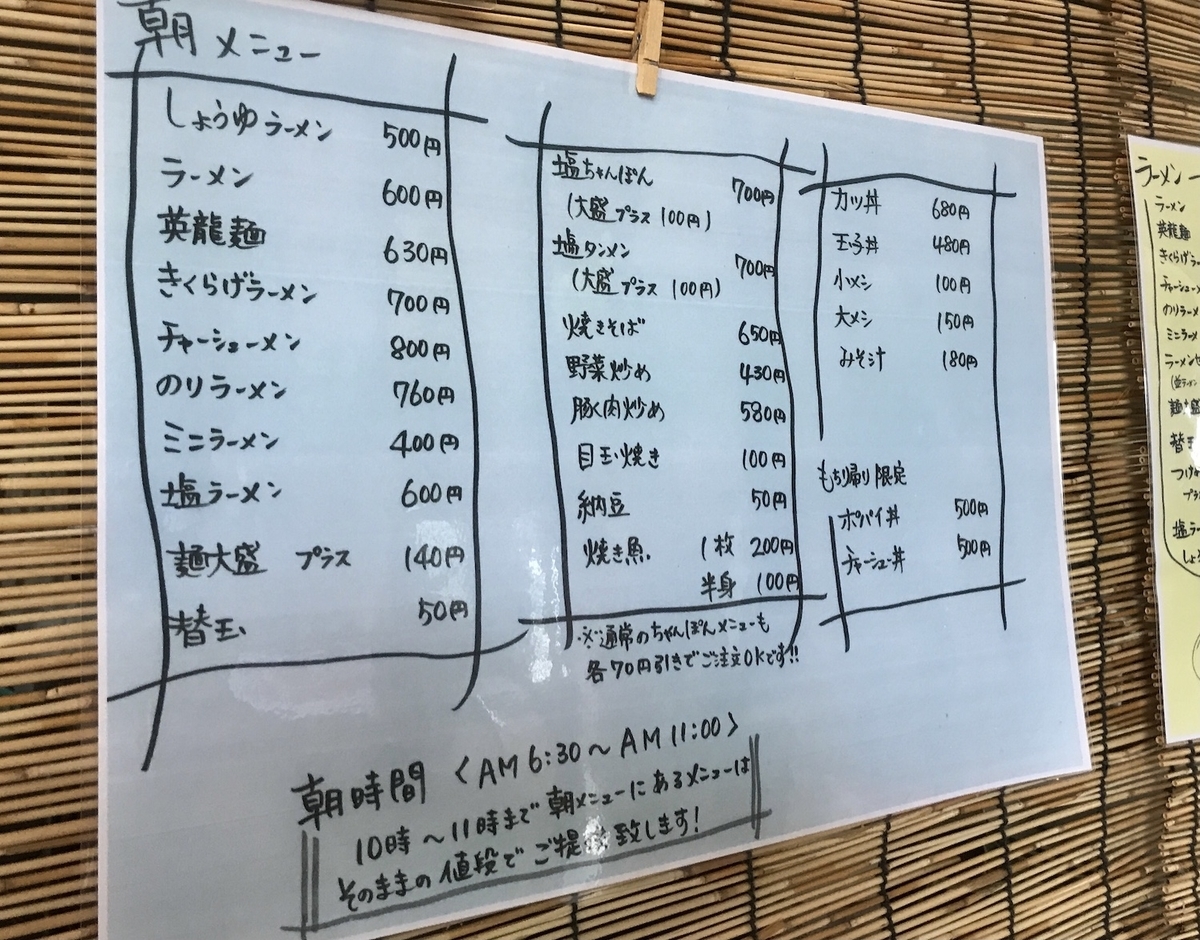 朝メニュー
しょうゆラーメン 500円
ラーメン 600円
英龍麺 630円
きくらげラーメン 700円
チャーシューメン 800円
のりラーメン 760円
ミニラーメン 400円
塩ラーメン 600円
麺大盛 プラス 140円
替玉 50円
塩ちゃんぽん 700円
(大盛プラス100円)
塩タンメン 700円
(大盛プラス100円)
焼きそば 650円
野菜炒め 430円
豚く肉炒め 580円
目玉焼き 100円
納豆 50円
焼き魚 1枚 200円
半身 100円
※通常のちゃんぽんメニューも
各70円引きでご注文OKです!!
カツ丼 680円
玉子丼 480円
小メシ 100円
大メシ 150円
みそ汁 180円
もち帰り限定
ポパイ丼 500円
チャーシュー丼 500円
朝時間 <AM6:30~AM11:00>
10時~11時まで朝メニューにあるメニューは
そのままの値段でご提供致します!
ラーメン
ラーメン
英龍麺
きくらげラー
チャーシューメ
のりラーメ
ミニラーメ
ラーメンセ
麺大盛
替玉
つけ
プラ
塩ラー
しょう